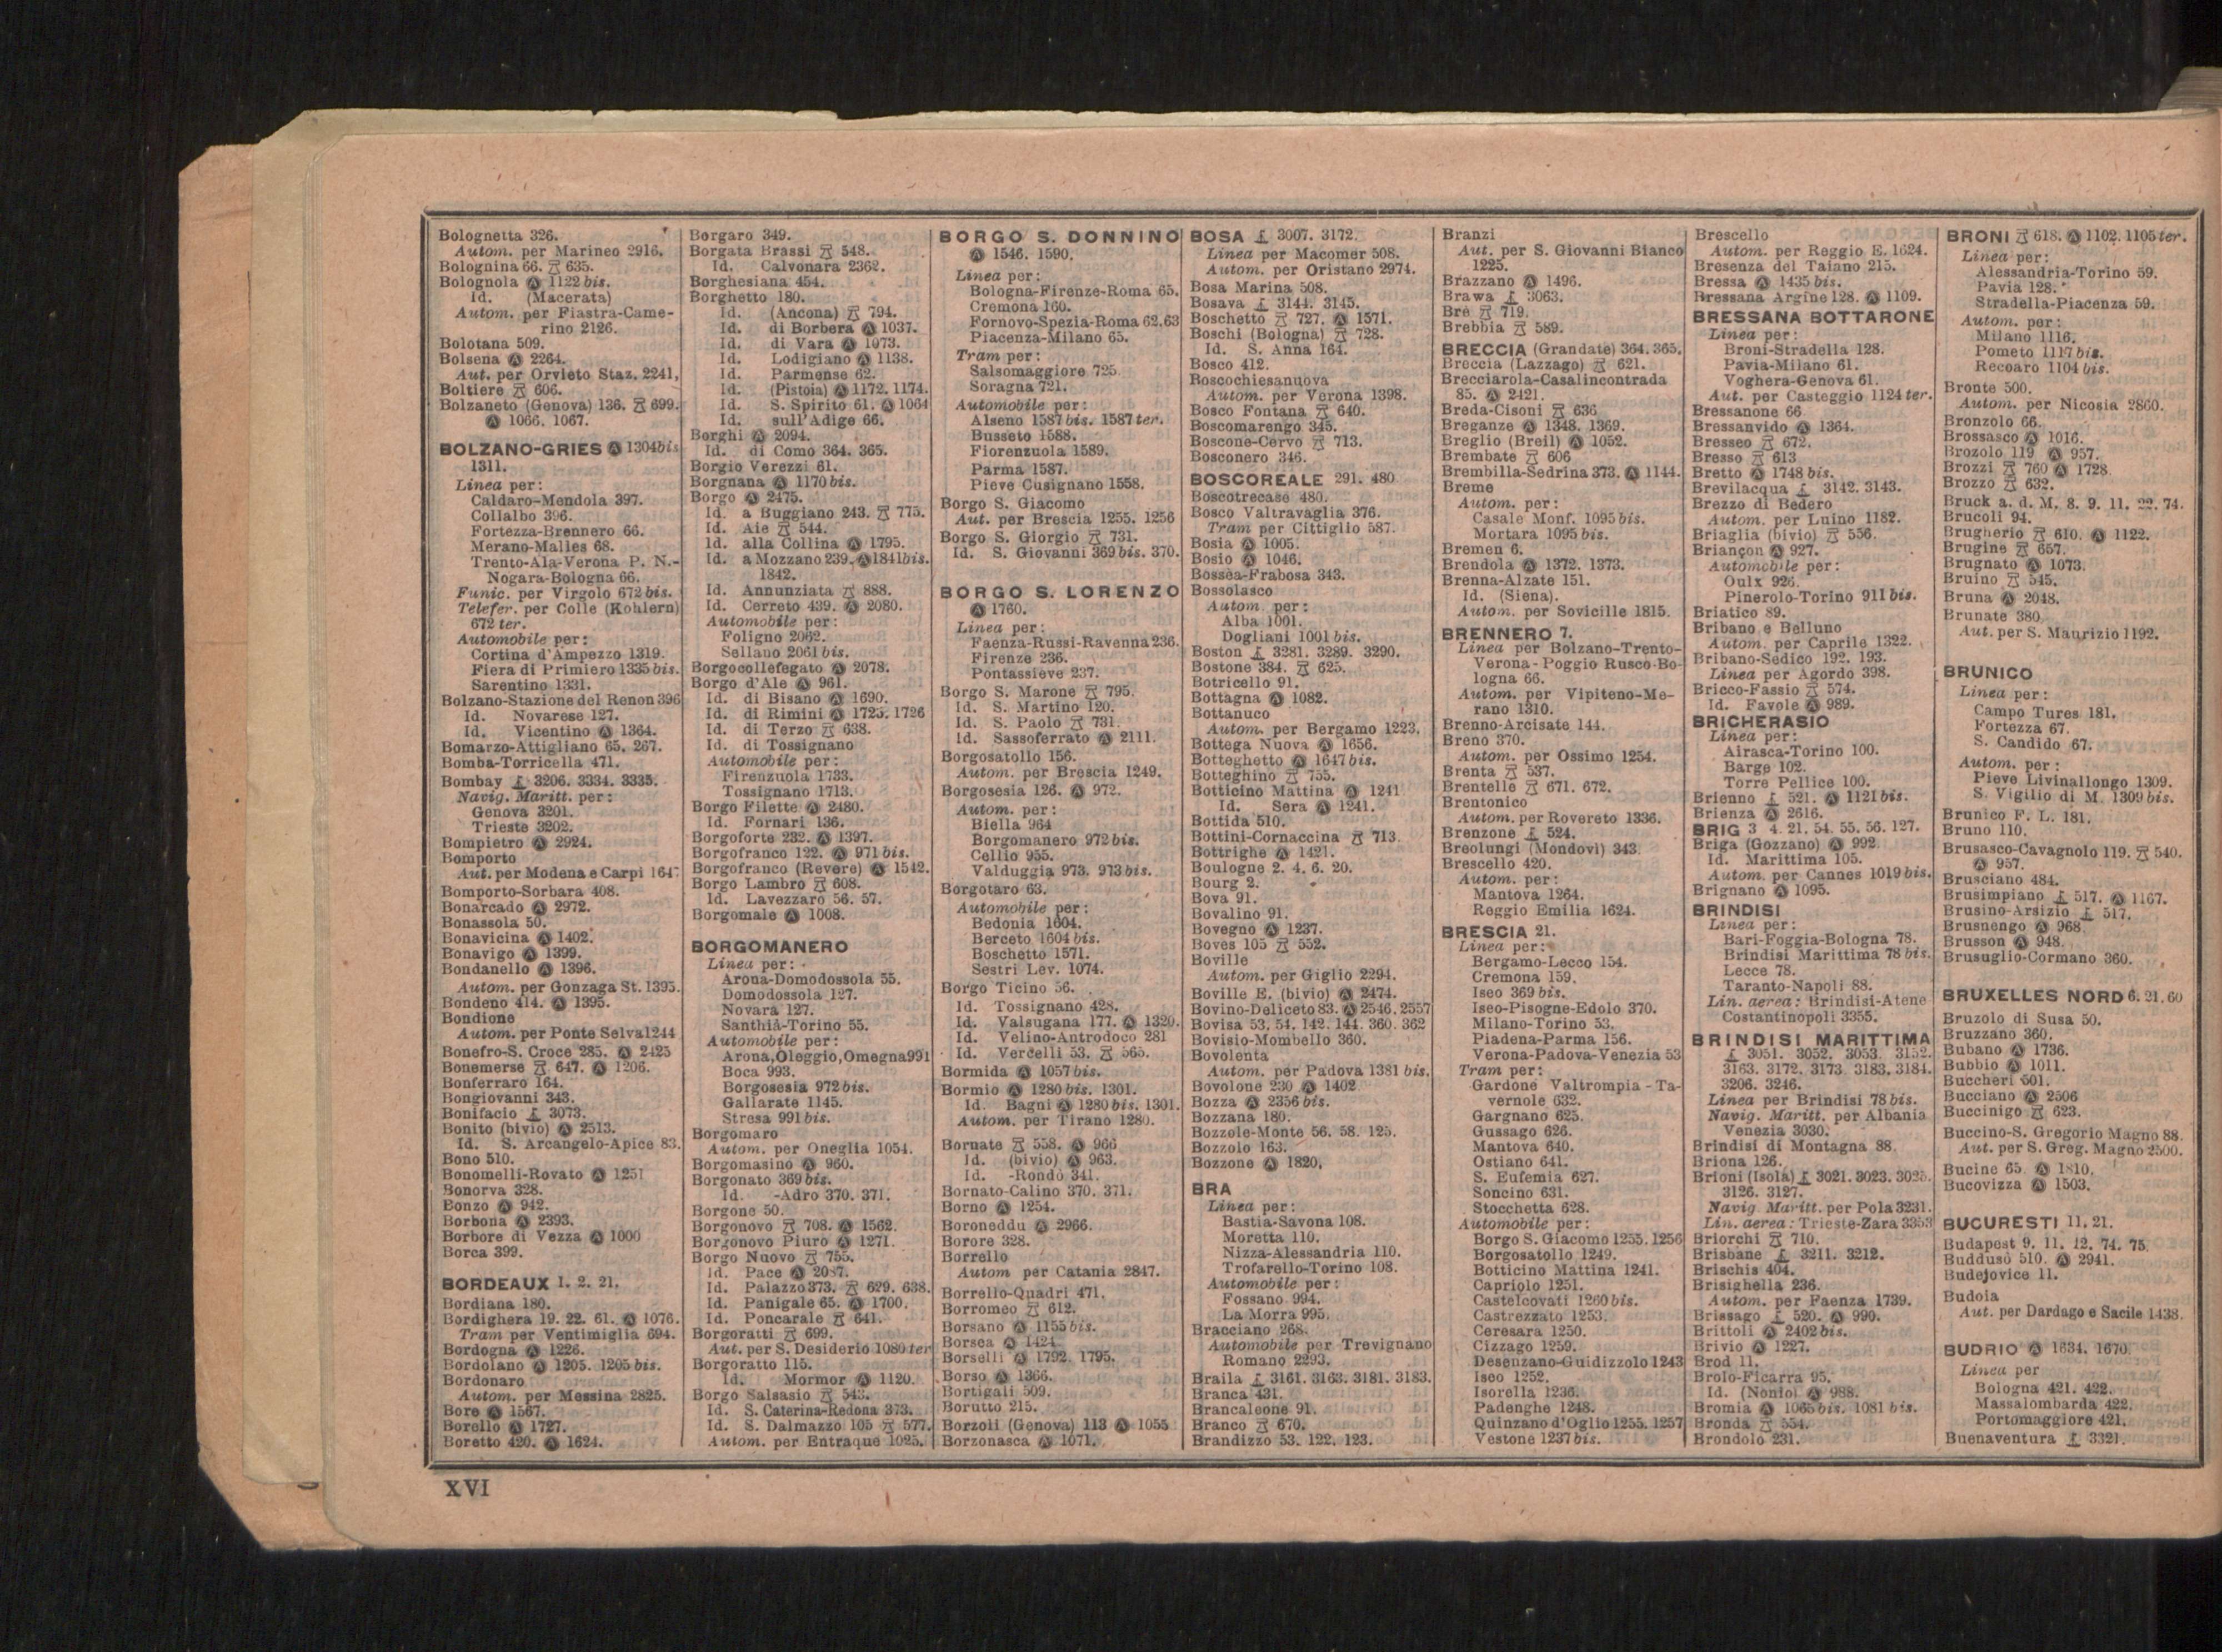 Bolognetta 326.
Autom. per Marineo 2916.
Bolognina 66. 635.
Bolognola Ⓐ 1122 bis.
Id. (Macerata)
Autom. per Fiastra-Came-
rino 2126.
Bolotana 509.
Bolsena Ⓐ 2264.
Aut. per Orvieto Staz. 2241,
Boltiere 606.
Bolzaneto (Genova) 136. 699.
Ⓐ 1066. 1067.
BOLZANO-GRIES Ⓐ 1304bis
1311.
Linea per:
Caldaro-Mendola 397.
Collalbo 396.
Fortezza-Brennero 66.
Merano-Malles 68.
Trento-Ala-Verona P. N.-
Nogara-Bologna 66.
Funic. per Virgolo 672 bis.
Telefer. per Colle (Kohlern)
672 ter.
Automobile per:
Cortina d'Ampezzo 1319.
Fiera di Primiero 1335 bis.
Sarentino 1331.
Bolzano-Stazione del Renon 396
Id. Novarese 127.
Id. Vicentino Ⓐ 1364.
Bomarzo-Attigliano 65. 267.
Bomba-Torricella 471.
Bombay 3206. 3334. 3335.
Navig. Maritt. per:
Genova 3201.
Trieste 3202.
Bompietro Ⓐ 2924.
Bomporto
Aut. per Modena e Carpi 1647
Bomporto-Sorbara 408.
Bonarcado Ⓐ 2972.
Bonassola 50.
Bonavicina Ⓐ 1402.
Bonavigo Ⓐ 1399.
Bondanello Ⓐ 1396.
Autom. per Gonzaga St. 1395.
Bondeno 414. Ⓐ 1395.
Bondione
Autom. per Ponte Selva 1244
Bonefro-S. Croce 285. Ⓐ 2425
Bonemerse 647. Ⓐ 1206.
Bonferraro 164.
Bongiovanni 343.
Bonifacio 3073.
Bonito (bivio) Ⓐ 2513.
Id. S. Arcangelo-Apice 83.
Bono 510.
Bonomelli-Rovato Ⓐ 1251
Bonorva 328.
Bonzo Ⓐ 942.
Borbona Ⓐ 2393.
Borbore di Vezza Ⓐ 1000
Borca 399.
BORDEAUX 1. 2. 21.
Bordiana 180.
Bordighera 19. 22. 61. Ⓐ 1076.
Tram per Ventimiglia 694.
Bordogna Ⓐ 1226.
Bordolano Ⓐ 1205. 1205 bis.
Bordonaro
Autom. per Messina 2825.
Bore Ⓐ 1567.
Borello Ⓐ 1727.
Boretto 420. Ⓐ 1624.
Borgaro 349.
Borgata Brassi 548.
Id. Calvonara 2362.
Borghesiana 454.
Borghetto 180.
Id. (Ancona) 794.
Id. di Borbera Ⓐ 1037.
Id. di Vara Ⓐ 1073.
Id. Lodigiano Ⓐ 1138.
Id. Parmense 62.
Id. (Pistoia) Ⓐ 1172. 1174.
Id. S. Spirito 61. Ⓐ 1064
Id. sull'Adige 66.
Borghi Ⓐ 2094.
Id. di Como 364. 365.
Borgio Verezzi 61.
Borgnana Ⓐ 1170 bis.
Borgo Ⓐ 2475.
Id. a Buggiano 243. 775.
Id. Aie 544.
Id. alla Collina Ⓐ 1795.
Id. a Mozzano 239. Ⓐ 1841bis.
1842.
Id. Annunziata 888.
Id. Cerreto 439. Ⓐ 2080.
Automobile per:
Foligno 2062.
Sellano 2061 bis.
Borgocollefegato Ⓐ 2078.
Borgo d'Ale Ⓐ 961.
Id. di Bisano Ⓐ 1690.
Id. di Rimini Ⓐ 1725. 1726
Id. di Terzo 638.
Id. di Tossignano
Automobile per:
Firenzuola 1733.
Tossignano 1713.
Borgo Filette Ⓐ 2480.
Id. Fornari 136.
Borgoforte 232. Ⓐ 1397.
Borgofranco 122. Ⓐ 971 bis.
Borgofranco (Revere) Ⓐ 1542.
Borgo Lambro 608.
Id. Lavezzaro 56. 57.
Borgomale Ⓐ 1008.
BORGOMANERO
Linea per:
Arona-Domodossola 55.
Domodossola 127.
Novara 127.
Santhià-Torino 55.
Automobile per:
Arona, Oleggio, Omegna 991
Boca 993.
Borgosesia 972 bis.
Gallarate 1145.
Stresa 991 bis.
Borgomaro
Autom. per Oneglia 1054.
Borgomasino Ⓐ 960.
Borgonato 369 bis.
Id. -Adro 370. 371.
Borgone 50.
Borgonovo 708. Ⓐ 1562.
Borgonovo Piuro Ⓐ 1271.
Borgo Nuovo 755.
Id. Pace Ⓐ 2087.
Id. Palazzo 373. 629. 638.
Id. Panigale 65. Ⓐ 1700.
Id. Poncarale 641.
Borgoratti 699.
Aut. per S. Desiderio 1080 ter
Borgoratto 115.
Id. Mormor Ⓐ 1120.
Borgo Salsasio 543.
Id. S. Caterina-Redona 373.
Id. S. Dalmazzo 105 577.
Autom. per Entraque 1025.
BORGO S. DONNINO
Ⓐ 1546. 1590.
Linea per:
Bologna-Firenze-Roma 65.
Cremona 160.
Fornovo-Spezia-Roma 62. 63
Piacenza-Milano 65.
Tram per:
Salsomaggiore 725
Soragna 721.
Automobile per:
Alseno 1587 bis. 1587 ter.
Busseto 1588.
Fiorenzuola 1589.
Parma 1587.
Pieve Cusignano 1558.
Borgo S. Giacomo
Aut. per Brescia 1255. 1256
Borgo S. Giorgio 731.
Id. S. Giovanni 369 bis. 370.
BORGO S. LORENZO
Ⓐ 1760.
Linea per:
Faenza-Russi-Ravenna 236.
Firenze 236.
Pontassieve 237.
Borgo S. Marone 795.
Id. S. Martino 120.
Id. S. Paolo 731.
Id. Sassoferrato Ⓐ 2111.
Borgosatollo 156.
Autom. per Brescia 1249.
Borgosesia 126. Ⓐ 972.
Autom. per:
Biella 964
Borgomanero 972 bis.
Cellio 955.
Valduggia 973. 973 bis.
Borgotaro 63.
Automobile per:
Bedonia 1604.
Berceto 1604 bis.
Boschetto 1571.
Sestri Lev. 1074.
Borgo Ticino 56.
Id. Tossignano 428.
Id. Valsugana 177. Ⓐ 1320.
Id. Velino-Antrodoco 281
Id. Vercelli 53. 565.
Bormida Ⓐ 1057 bis.
Bormio Ⓐ 1280 bis. 1301.
Id. Bagni Ⓐ 1280 bis. 1301.
Autom. per Tirano 1280.
Bornate 558. Ⓐ 966
Id. (bivio) Ⓐ 963.
Id. -Rondò 341.
Bornato-Calino 370. 371.
Borno Ⓐ 1254.
Boroneddu Ⓐ 2966.
Borore 328.
Borrello
Autom per Catania 2847.
Borrello-Quadri 471.
Borromeo 612.
Borsano Ⓐ 1155 bis.
Borsea Ⓐ 1424
Borselli Ⓐ 1792. 1795.
Borso Ⓐ 1366.
Bortigali 509.
Borutto 215.
Borzoli (Genova) 113 Ⓐ 1055
Borzonasca Ⓐ 1071.
BOSA 3007. 3172.
Linea per Macomer 508.
Autom. per Oristano 2974.
Bosa Marina 508.
Bosava 3144. 3145.
Boschetto 727. Ⓐ 1571.
Boschi (Bologna) 728.
Id. S. Anna 164.
Bosco 412.
Boscochiesanuova
Autom. per Verona 1398.
Bosco Fontana 640.
Boscomarengo 345.
Boscone-Cervo 713.
Bosconero 346.
BOSCOREALE 291. 480
Boscotrecase 480.
Bosco Valtravaglia 376.
Tram per Cittiglio 587.
Bosia Ⓐ 1005.
Bosio Ⓐ 1046.
Bossèa-Frabosa 343.
Bossolasco
Autom. per:
Alba 1001.
Dogliani 1001 bis.
Boston 3281. 3289. 3290.
Bostone 384. 625.
Botricello 91.
Bottagna Ⓐ 1082.
Bottanuco
Autom. per Bergamo 1223.
Bottega Nuova Ⓐ 1656.
Botteghetto Ⓐ 1647 bis.
Botteghino 755.
Botticino Mattina Ⓐ 1241
Id. Sera Ⓐ 1241.
Bottida 510.
Bottini-Cornaccina 713.
Bottrighe Ⓐ 1421.
Boulogne 2. 4. 6. 20.
Bourg 2.
Bova 91.
Bovalino 91.
Bovegno Ⓐ 1237.
Boves 105 552.
Boville
Autom. per Giglio 2294.
Boville E. (bivio) Ⓐ 2474.
Bovino-Deliceto 83. Ⓐ 2546. 2557
Bovisa 53. 54. 142. 144. 360. 362
Bovisio-Mombello 360.
Bovolenta
Autom. per Padova 1381 bis.
Bovolone 230 Ⓐ 1402
Bozza Ⓐ 2356 bis.
Bozzana 180.
Bozzole-Monte 56. 58. 125.
Bozzolo 163.
Bozzone Ⓐ 1820.
BRA
Linea per:
Bastia-Savona 108.
Moretta 110.
Nizza-Alessandria 110.
Trofarello-Torino 108.
Automobile per:
Fossano 994.
La Morra 995.
Bracciano 268.
Automobile per Trevignano
Romano 2293.
Braila 3161. 3163. 3181. 3183.
Branca 431.
Brancaleone 91.
Branco 670.
Brandizzo 53. 122. 123.
Branzi
Aut. per S. Giovanni Bianco
1225.
Brazzano Ⓐ 1496.
Brawa 3063.
Bré 719.
Brebbia 589.
BRECCIA (Grandate) 364. 365.
Breccia (Lazzago) 621.
Brecciarola-Casalincontrada
85. Ⓐ 2421.
Breda-Cisoni 636
Breganze Ⓐ 1348. 1369.
Breglio (Breil) Ⓐ 1052.
Brembate 606
Brembilla-Sedrina 373. Ⓐ 1144.
Breme
Autom. per:
Casale Monf. 1095 bis.
Mortara 1095 bis.
Bremen 6.
Brendola Ⓐ 1372. 1373.
Brenna-Alzate 151.
Id. (Siena).
Autom. per Sovicille 1815.
BRENNERO 7.
Linea per Bolzano-Trento-
Verona-Poggio Rusco-Bo-
logna 66.
Autom. per Vipiteno-Me-
rano 1310.
Brenno-Arcisate 144.
Breno 370.
Autom. per Ossimo 1254.
Brenta 537.
Brentelle 671. 672.
Brentonico
Autom. per Rovereto 1336.
Brenzone 524.
Breolungi (Mondovì) 343.
Brescello 420.
Autom. per:
Mantova 1264.
Reggio Emilia 1624.
BRESCIA 21.
Linea per:
Bergamo-Lecco 154.
Cremona 159.
Iseo 369 bis.
Iseo-Pisogne-Edolo 370.
Milano-Torino 53.
Piadena-Parma 156.
Verona-Padova-Venezia 53
Tram per:
Gardone Valtrompia - Ta-
vernole 632.
Gargnano 625.
Gussago 626.
Mantova 640.
Ostiano 641.
S. Eufemia 627.
Soncino 631.
Stocchetta 628.
Automobile per:
Borgo S. Giacomo 1255. 1256
Borgosatollo 1249.
Botticino Mattina 1241.
Capriolo 1251.
Castelcovati 1260 bis.
Castrezzato 1253.
Ceresara 1250.
Cizzago 1259.
Desenzano-Guidizzolo 1243
Iseo 1252.
Isorella 1236.
Padenghe 1248.
Quinzano d'Oglio 1255. 1257
Vestone 1237 bis.
Brescello
Autom. per Reggio E. 1624.
Bresenza del Taiano 215.
Bressa Ⓐ 1435 bis.
Bressana Argine 128. Ⓐ 1109.
BRESSANA BOTTARONE
Linea per:
Broni-Stradella 128.
Pavia-Milano 61.
Voghera-Genova 61.
Aut. per Casteggio 1124 ter.
Bressanone 66
Bressanvido Ⓐ 1364.
Bresseo 672.
Bresso 613
Bretto Ⓐ 1748 bis.
Brevilacqua 3142. 3143.
Brezzo di Bedero
Autom. per Luino 1182.
Briaglia (bivio) 556.
Briançon Ⓐ 927.
Automobile per:
Oulx 926.
Pinerolo-Torino 911 bis.
Briatico 89.
Bribano e Belluno
Autom. per Caprile 1322.
Bribano-Sedico 192. 193.
Linea per Agordo 398.
Bricco-Fassio 574.
Id. Favole Ⓐ 989.
BRICHERASIO
Linea per:
Airasca-Torino 100.
Barge 102.
Torre Pellice 100.
Brienno 521. Ⓐ 1121 bis.
Brienza Ⓐ 2616.
BRIG 3 4. 21. 54. 55. 56. 127.
Briga (Gozzano) Ⓐ 992
Id. Marittima 105.
Autom. per Cannes 1019 bis.
Brignano Ⓐ 1095.
BRINDISI
Linea per:
Bari-Foggia-Bologna 78.
Brindisi Marittima 78 bis.
Lecce 78.
Taranto-Napoli 88.
Lin. aerea: Brindisi-Atene
Costantinopoli 3355.
BRINDISI MARITTIMA
3051. 3052. 3053. 3152.
3163. 3172. 3173 3183. 3184.
3206. 3246.
Linea per Brindisi 78 bis.
Navig. Maritt. per Albania
Venezia 3030.
Brindisi di Montagna 88
Briona 126.
Brioni (Isola) 3021. 3023. 3025.
3126. 3127.
Navig Maritt. per Pola 3231.
Lin. aerea: Trieste-Zara 3353
Briorchi 710.
Brisbane 3211. 3212.
Brischis 404.
Brisighella 236.
Autom. per Faenza 1739.
Brissago 520. Ⓐ 990.
Brittoli Ⓐ 2402 bis.
Brivio Ⓐ 1227.
Brod 11.
Brolo-Ficarra 95.
Id. (Nonio) Ⓐ 988.
Bromia Ⓐ 1065 bis. 1081 bis.
Bronda 554.
Brondolo 231.
BRONI 618. Ⓐ 1102. 1105 ter.
Linea per:
Alessandria-Torino 59.
Pavia 128.
Stradella-Piacenza 59.
Autom. per:
Milano 1116.
Pometo 1117 bis.
Recoaro 1104 bis.
Bronte 500.
Autom. per Nicosia 2860.
Bronzolo 66.
Brossasco Ⓐ 1016.
Brozolo 119 Ⓐ 957.
Brozzi 760 Ⓐ 1728
Brozzo 632.
Bruck a. d. M. 8. 9. 11. 22. 74.
Brucoli 94.
Brugherio 610. Ⓐ 1122.
Brugine 657.
Brugnato Ⓐ 1073.
Bruino 545.
Bruna Ⓐ 2048.
Brunate 380
Aut. per S. Maurizio 1192.
BRUNICO
Linea per:
Campo Tures 181.
Fortezza 67.
S. Candido 67.
Autom. per:
Pieve Livinallongo 1309.
S. Vigilio di M. 1309 bis.
Brunico F. L. 181.
Bruno 110.
Brusasco-Cavagnolo 119. 540.
Ⓐ 957.
Brusciano 484.
Brusimpiano 517. Ⓐ 1167.
Brusino-Arsizio 517.
Brusnengo Ⓐ 968
Brusson Ⓐ 948
Brusuglio-Cormano 360.
BRUXELLES NORD 6. 21. 60
Bruzolo di Susa 50.
Bruzzano 360.
Bubano Ⓐ 1736.
Bubbio Ⓐ 1011.
Buccheri 501.
Bucciano Ⓐ 2506
Buccinigo 623.
Buccino-S. Gregorio Magno 88.
Aut. per S. Greg. Magno 2500.
Bucine 65. Ⓐ 1810.
Bucovizza Ⓐ 1503.
BUCURESTI 11. 21.
Budapest 9. 11. 12. 74. 75.
Buddusò 510. Ⓐ 2941.
Budejovice 11.
Budoia
Aut. per Dardago e Sacile 1438.
BUDRIO Ⓐ 1634. 1670.
Linea per
Bologna 421. 422.
Massalombarda 422.
Portomaggiore 421.
Buenaventura 3321.
XVI